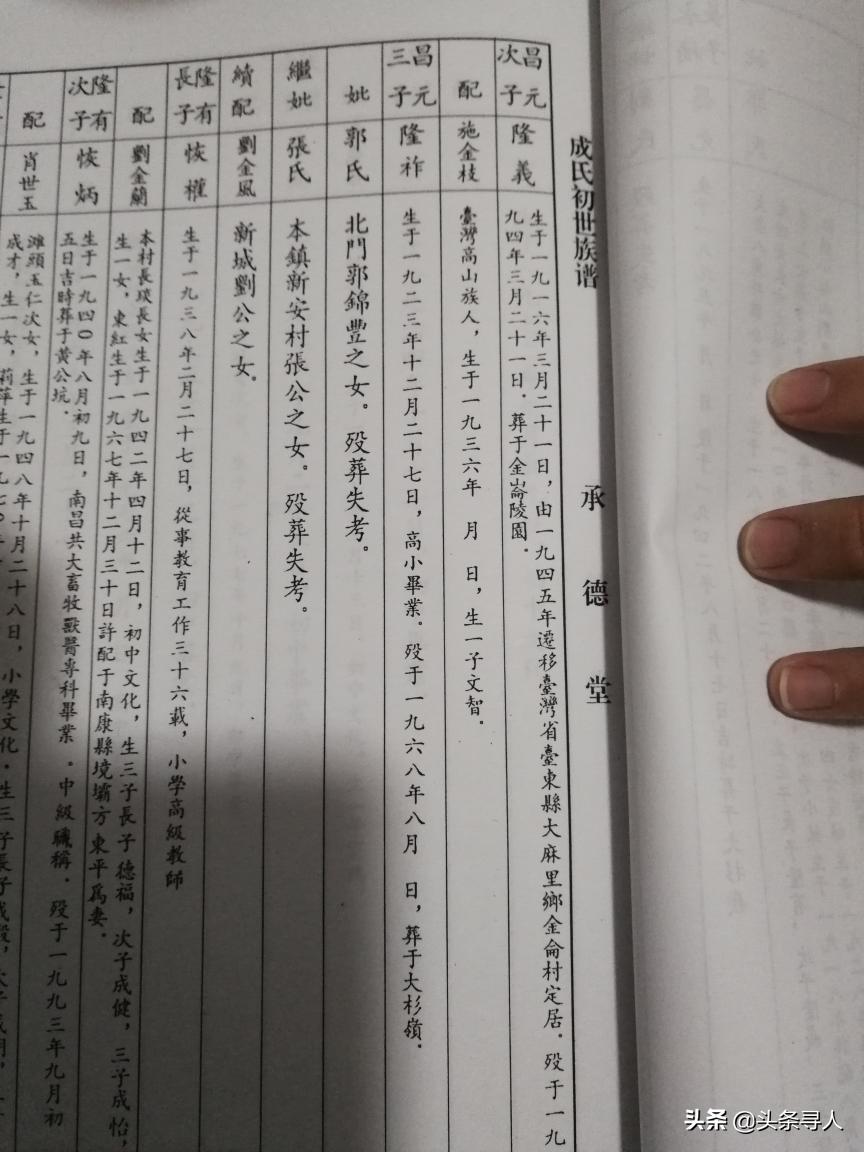 成氏初世族谱
承德堂
昌元次子
隆義
生于一九一六年三月二十一日，由一九四五年遷移臺灣省臺東縣大麻里鄉金侖村定居。殁于一九
九四年三月二十一日．葬于金崙陵園．
配
施金枝
臺灣高山族人，生于一九三六年　月　日，生一子文智．
昌元三子
隆祚
生于一九二三年十二月二十七日，高小畢業。殁于一九六八年八月　日，葬于大杉嶺．
妣
郭氏
北門郭錦豐之女。殁葬失考。
繼妣
張氏
本鎮新安村張公之女。殁葬失考。
續配
劉金風
新城劉公之女。
隆有長子
恢權
生于一九三八年二月二十七日，從事教育工作三十六載，小學高級教師
配
劉金蘭
本村長琰長女生于一九四二年四月十二日，初中文化，生三子長子德福，次子成健，三子成怡，
生一女，東紅生于一九六七年十二月三十日許配于南康縣境壩方東平爲妻．
隆有次子
恢炳
生于一九四〇年八月初九日，南昌共大畜牧獸醫專科畢業。中級職稱．殁于一九九三年九月初
五日吉時葬于黄公坑．
配
肖世玉
滩頭玉仁次女，生于一九四八年十月二十八日，小學文化．生三子長子成毅，次子成明，
成才，生一女，莉萍生于一九七〇年
头条 @头条寻人